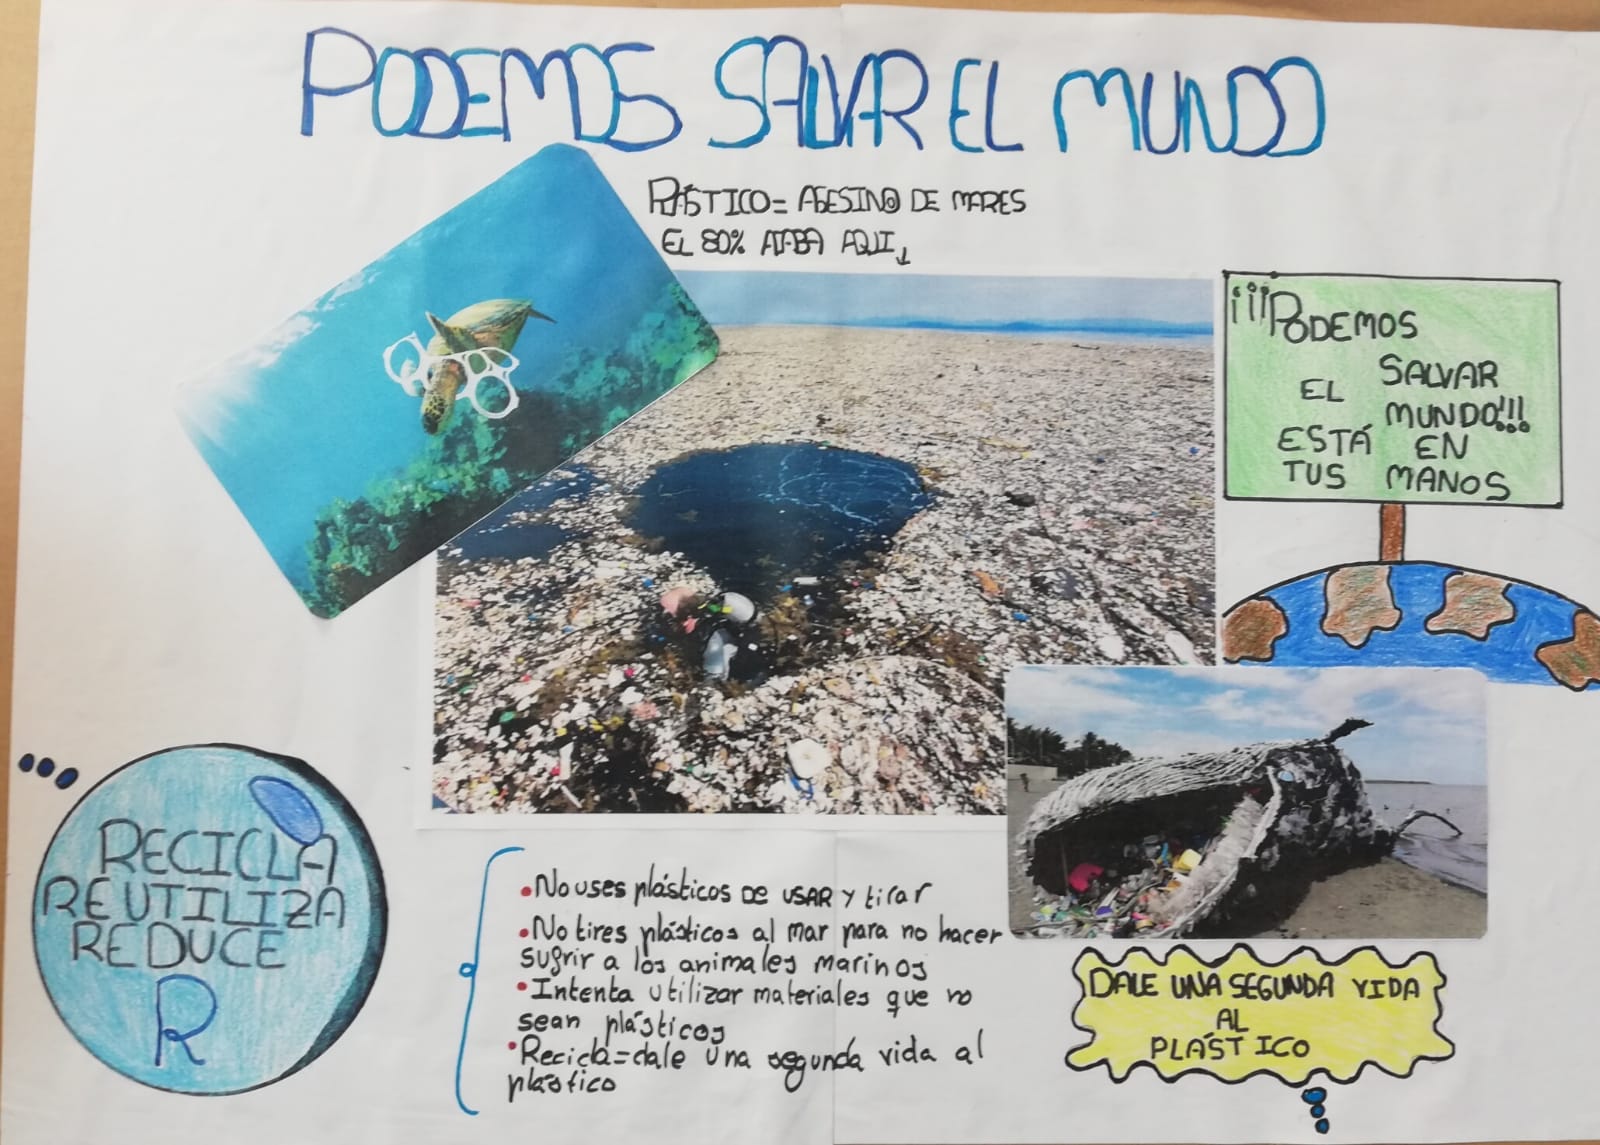 PODEMOS SALVAR EL MUNDO
PLÁSTICO = ASESINO DE MARES
EL 80% AQUI
¡¡¡PODEMOS
SALVAR
EL MUNDO!!!
ESTÁ EN
TUS MANOS
RECICLA
REUTILIZA
REDUCE
R
• No uses plásticos DE USAR y tirar
• No tires plásticos al mar para no hacer
sufrir a los animales marinos
• Intenta utilizar materiales que no
sean plásticos
• Recicla = dale una segunda vida al
plástico
DALE UNA SEGUNDA VIDA
AL
PLÁSTICO